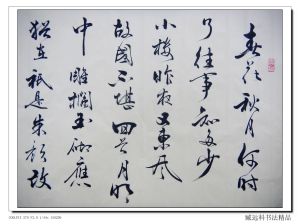 春花秋月何时
了往事知多少
小楼昨夜又东风
故國不堪回首月明
中雕欄玉砌應
猶在祇是朱顔改
臧远科书法精品